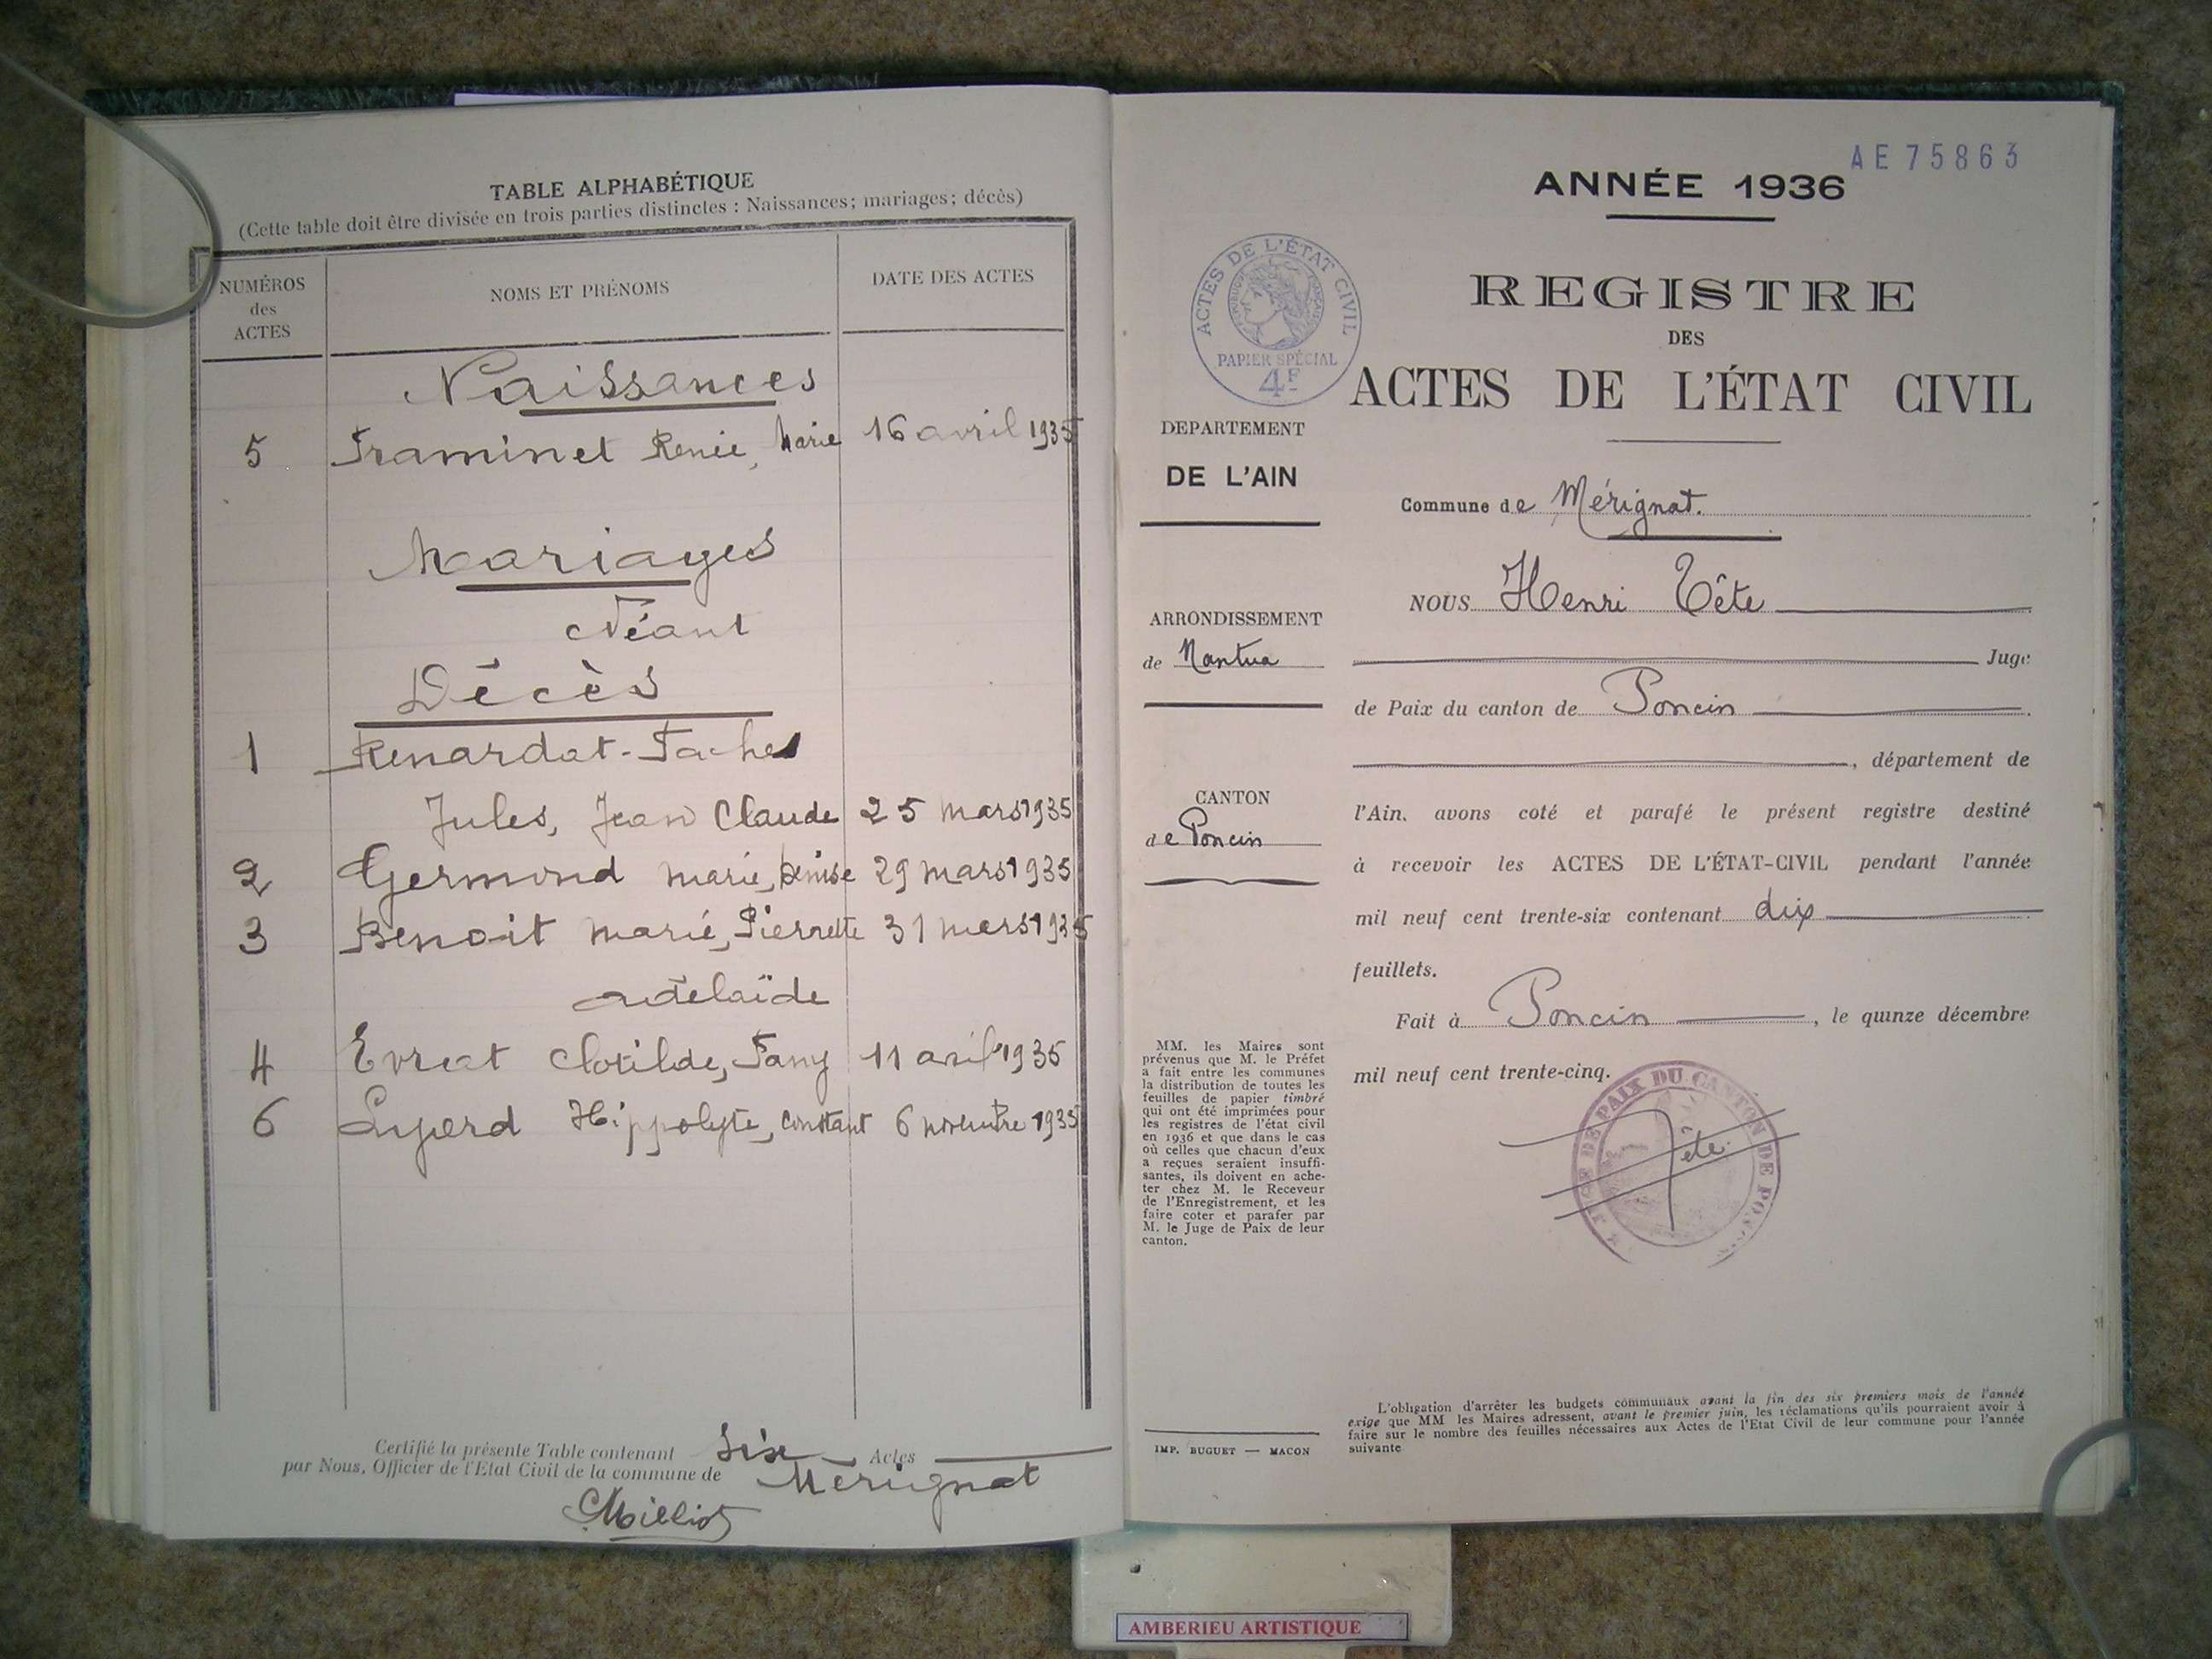 TABLE ALPHABÉTIQUE
(Cette table doit être divisée en trois parties distinctes : Naissances; mariages; décès)
NUMÉROS des ACTES
NOMS ET PRÉNOMS
DATE DES ACTES
Naissances
5 Traminet Renée, Marie 16 avril 1935
Mariages
Néant
Décès
1 Renardat-Faches
Jules, Jean Claude 25 mars 1935
2 Germond Marie, Denise 29 mars 1935
3 Benoit Marié, Pierrette 31 mars 1935
adélaïde
4 Evrat Clotilde, Fany 11 avril 1935
6 Hippolyte, Constant 6 novembre 1935
Certifié la présente Table contenant Six Actes
par Nous, Officier de l'Etat Civil de la commune de Mérignat
CMilliot
AE75863
ANNÉE 1936
REGISTRE
DES
ACTES DE L'ÉTAT CIVIL
ACTES DE L'ÉTAT CIVIL
RÉPUBLIQUE FRANÇAISE
PAPIER SPÉCIAL
4F
DEPARTEMENT
DE L'AIN
ARRONDISSEMENT
de Nantua
CANTON
de Poncin
MM. les Maires sont
prévenus que M. le Préfet
a fait entre les communes
la distribution de toutes les
feuilles de papier timbré
qui ont été imprimées pour
les registres de l'état civil
en 1936 et que dans le cas
où celles que chacun d'eux
a reçues seraient insuffi-
santes, ils doivent en ache-
ter chez M. le Receveur
de l'Enregistrement, et les
faire coter et parafer par
M. le Juge de Paix de leur
canton.
IMP. BUGUET — MACON
Commune de Mérignat.
NOUS Henri Tête
Juge
de Paix du canton de Poncin
, département de
l'Ain. avons coté et parafé le présent registre destiné
à recevoir les ACTES DE L'ÉTAT-CIVIL pendant l'année
mil neuf cent trente-six contenant dix
feuillets.
Fait à Poncin, le quinze décembre
mil neuf cent trente-cinq.
DE PAIX DU CANTON DE PON
Tête
L'obligation d'arrêter les budgets communaux avant la fin des six premiers mois de l'année
exige que MM les Maires adressent, avant le premier juin, les réclamations qu'ils pourraient avoir à
faire sur le nombre des feuilles nécessaires aux Actes de l'Etat Civil de leur commune pour l'année
suivante
AMBERIEU ARTISTIQUE